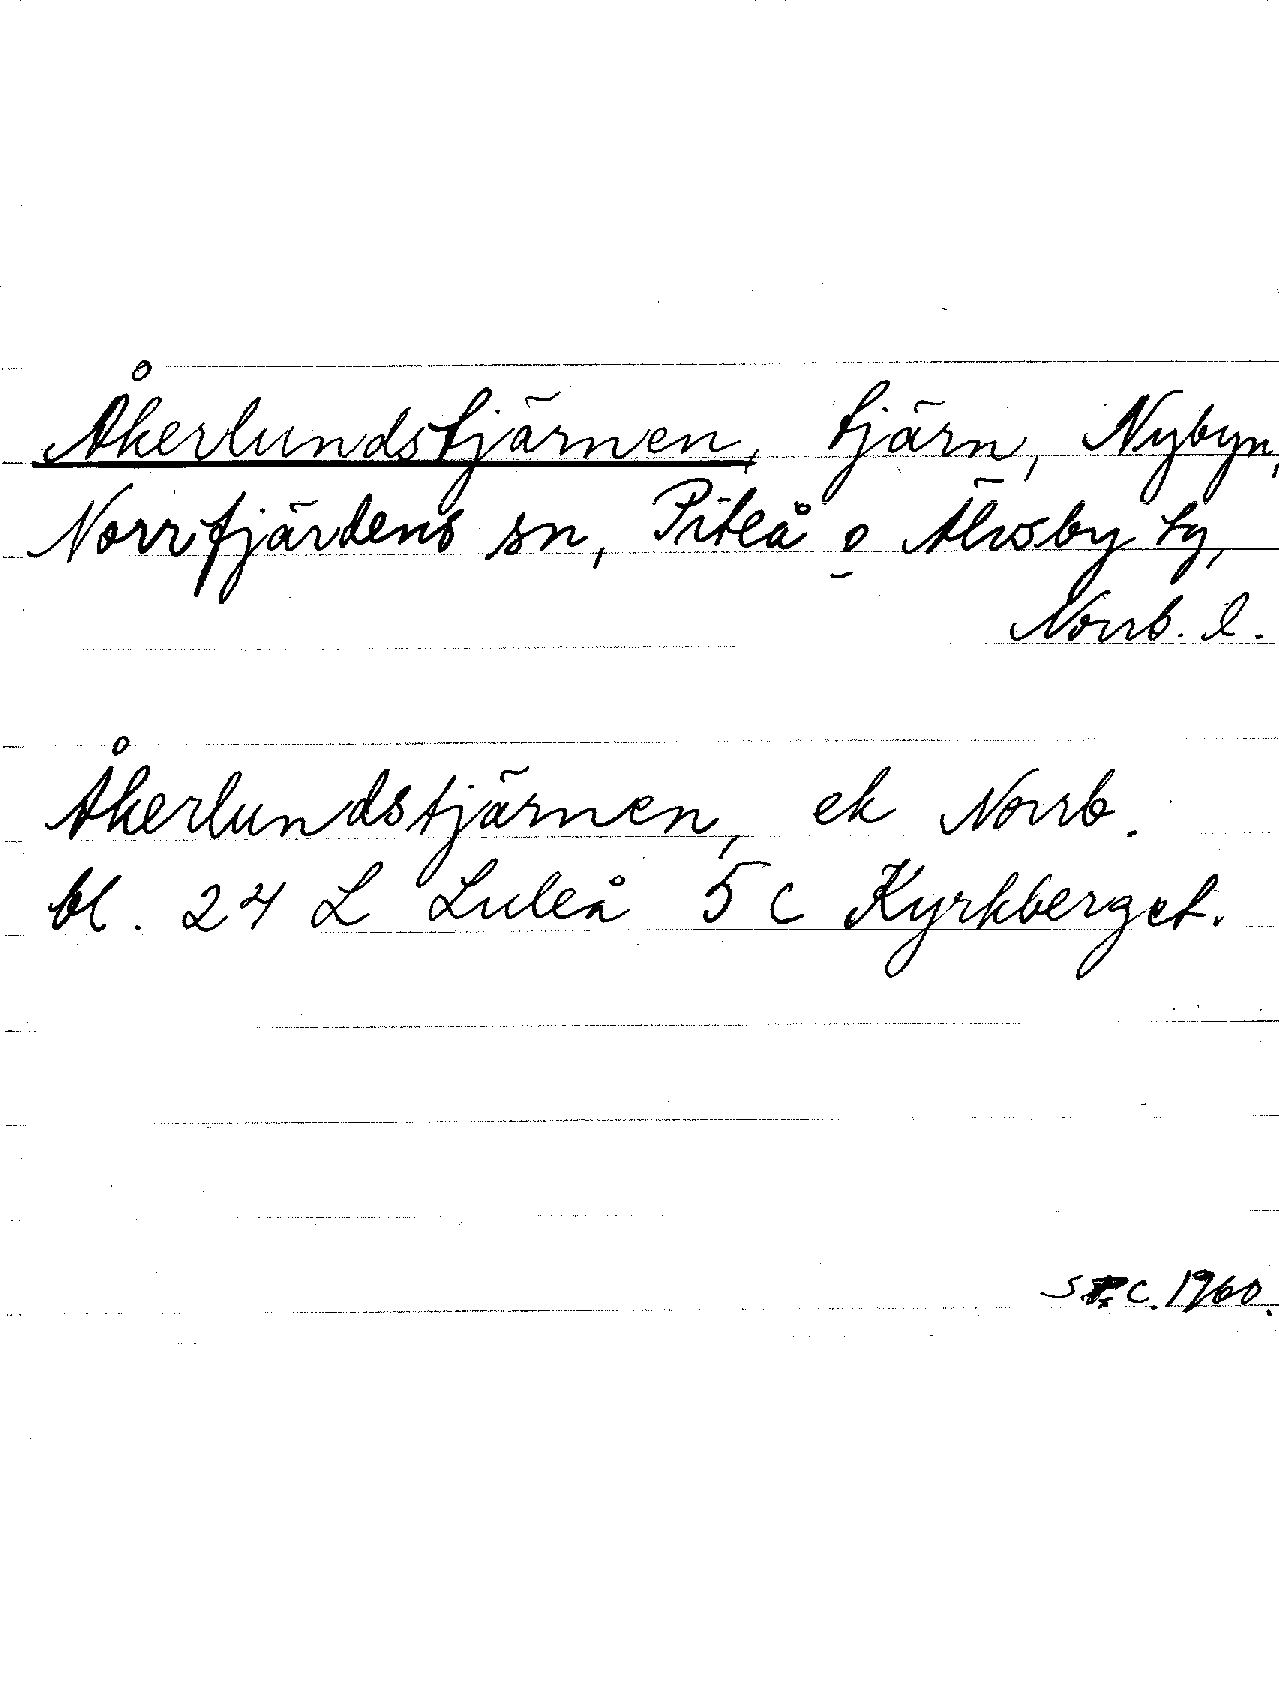 Åkerlundstjärnen, tjärn, Nybyn,
Norrfjärdens sn, Piteå o Älvsby tg,
Norrb. l.
Åkerlundstjärnen, ek Norrb.
bl. 24 L Luleå 5 c Kyrkberget.
1960.